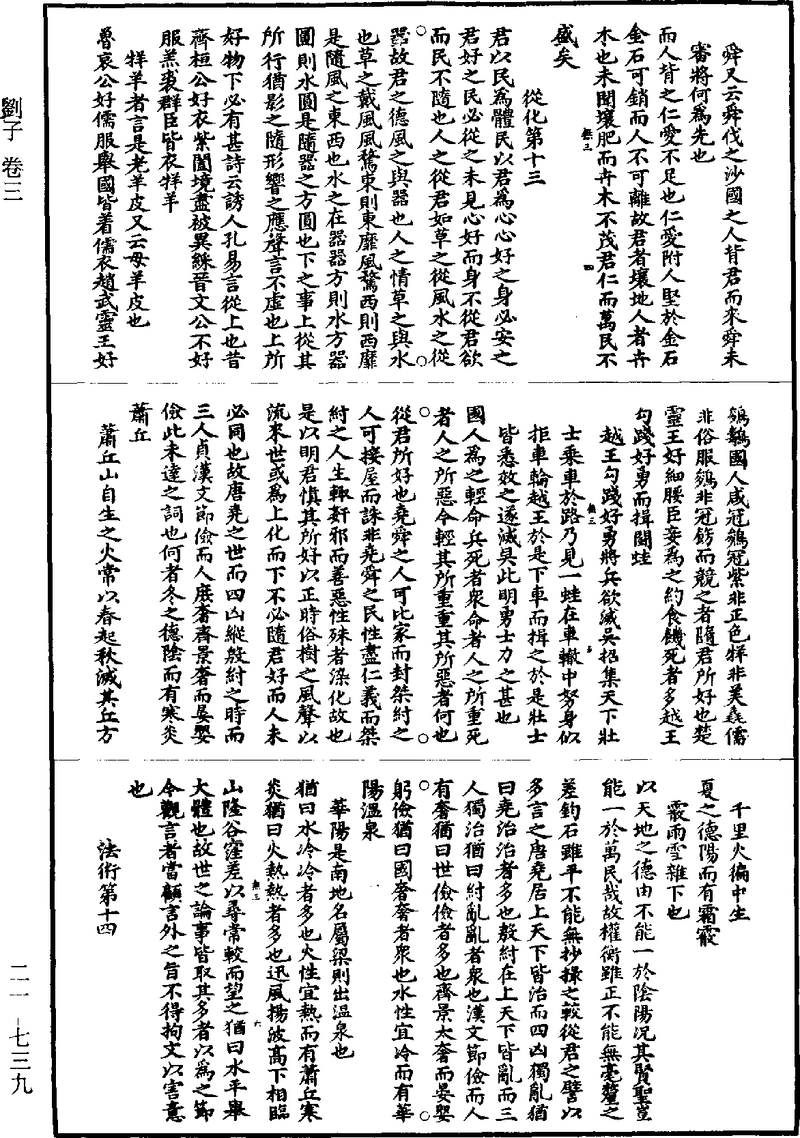 舜又云舜伐之沙國之人背君而來舜未
審將何為先也
而人背之仁愛不足也仁愛附人堅於金石
金石可銷而人不可離故君者壤地人者卉
木也未聞壤肥而卉木不茂君仁而萬民不
盛矣
從化第十三
君以民為體民以君為心心好之身必安之
君好之民必從之未見心好而身不從君欲
而民不隨也人之從君如草之從風水之從
器故君之德風之與器也人之情草之與水
也草之戴風風騖東則東靡風騖西則西靡
是隨風之東西也水之在器器方則水方器
圓則水圓是隨器之方圓也下之事上從其
所行猶影之隨形響之應聲言不虛也上所
好物下必有甚詩云誘人孔易言從上也昔
齊桓公好衣紫闔境盡被異綵晉文公不好
服羔裘群臣皆衣牂羊
牂羊者言是老羊皮又云母羊皮也
魯哀公好儒服舉國皆着儒衣趙武靈王好
鵕鸃國人咸冠鵕冠紫非正色牂非美毳儒
非俗服鵕非冠飾而競之者隨君所好也楚
靈王好細腰臣妾為之約食餓死者多越王
勾踐好勇而揖鬪蛙
越王勾踐好勇將兵欲滅吳招集天下壯
士乘車於路乃見一蛙在車轍中努身似
拒車輪越王於是下車而揖之於是壯士
皆悉效之遂滅吳此明勇士力之甚也
國人為之輕命兵死者眾命者人之所重死
者人之所惡今輕其所重重其所惡者何也
從君所好也堯舜之人可比家而封桀紂之
人可接屋而誅非堯舜之民性盡仁義而桀
紂之人生輙姧邪而善惡性殊者染化故也
是以明君慎其所好以正時俗樹之風聲以
流來世或為上化而下不必隨君好而人未
必同也故唐堯之世而四凶縱殷紂之時而
三人貞漢文節儉而人庶奢齊景奢而晏嬰
儉此未達之詞也何者冬之德陰而有寒炎
蕭丘
蕭丘山自生之火常以春起秋滅其丘方
千里火徧中生
夏之德陽而有霜霰
霰雨雪雜下也
以天地之德由不能一於陰陽況其賢聖豈
能一於萬民哉故權衡雖正不能無毫釐之
差鈞石雖平不能無抄撮之較從君之譬以
多言之唐堯居上天下皆治而四凶獨亂猶
曰堯治治者多也殷紂在上天下皆亂而三
人獨治猶曰紂亂亂者眾也漢文節儉而人
有奢猶曰世儉儉者多也齊景太奢而晏嬰
躬儉猶曰國奢奢者眾也水性宜冷而有華
陽溫泉
華陽是南地名屬梁則出溫泉也
猶曰水冷冷者多也火性宜熱而有蕭丘寒
炎猶曰火熱熱者多也迅風揚波高下相臨
山隆谷窪差以尋常較而望之猶曰水平舉
大體也故世之論事皆取其多者以為之節
今觀言者當顧言外之旨不得拘文以害意
也
法術第十四
劉子 卷三
二一-七三九